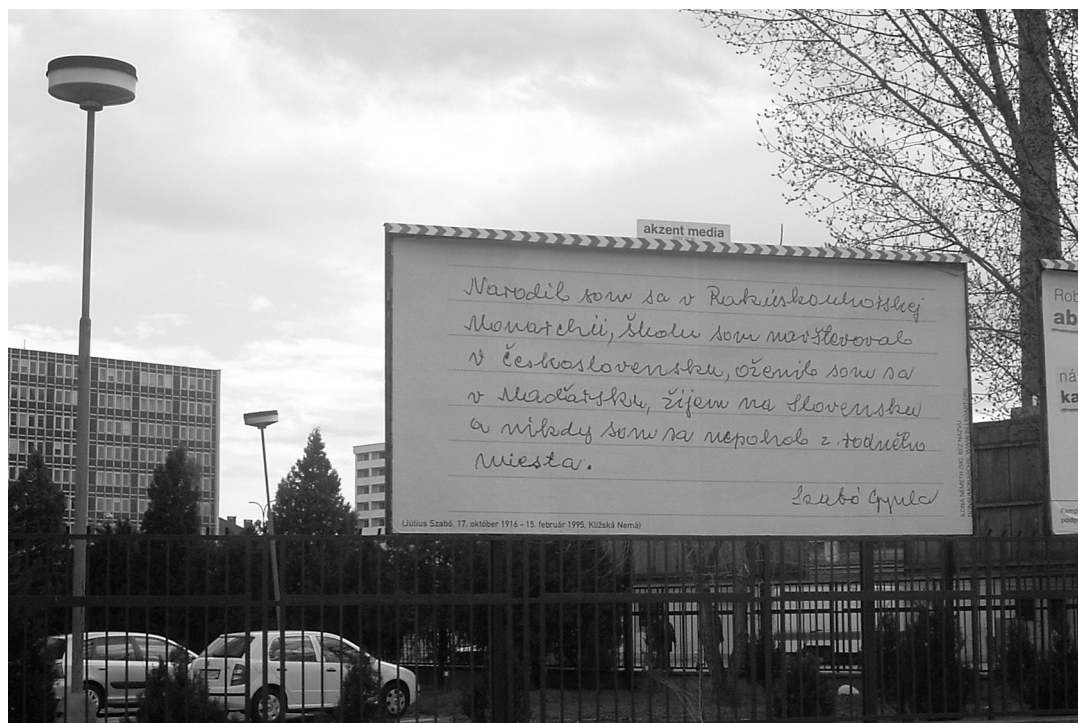 akzent media
Narodil som sa v Rakúskouhorskej
Monarchii, školu som navštevoval
v Československu, oženil som sa
v Maďarsku, žijem na Slovensku
a nikdy som sa nepohol z rodného
miesta.
Szabó Gyula
(Július Szabó, 17. október 1916 - 15. február 1995, Kližská Nemá)
ILONA NÉMETH (SK), BEZ NÁZVU
Rob
ab
ná
ka
podp